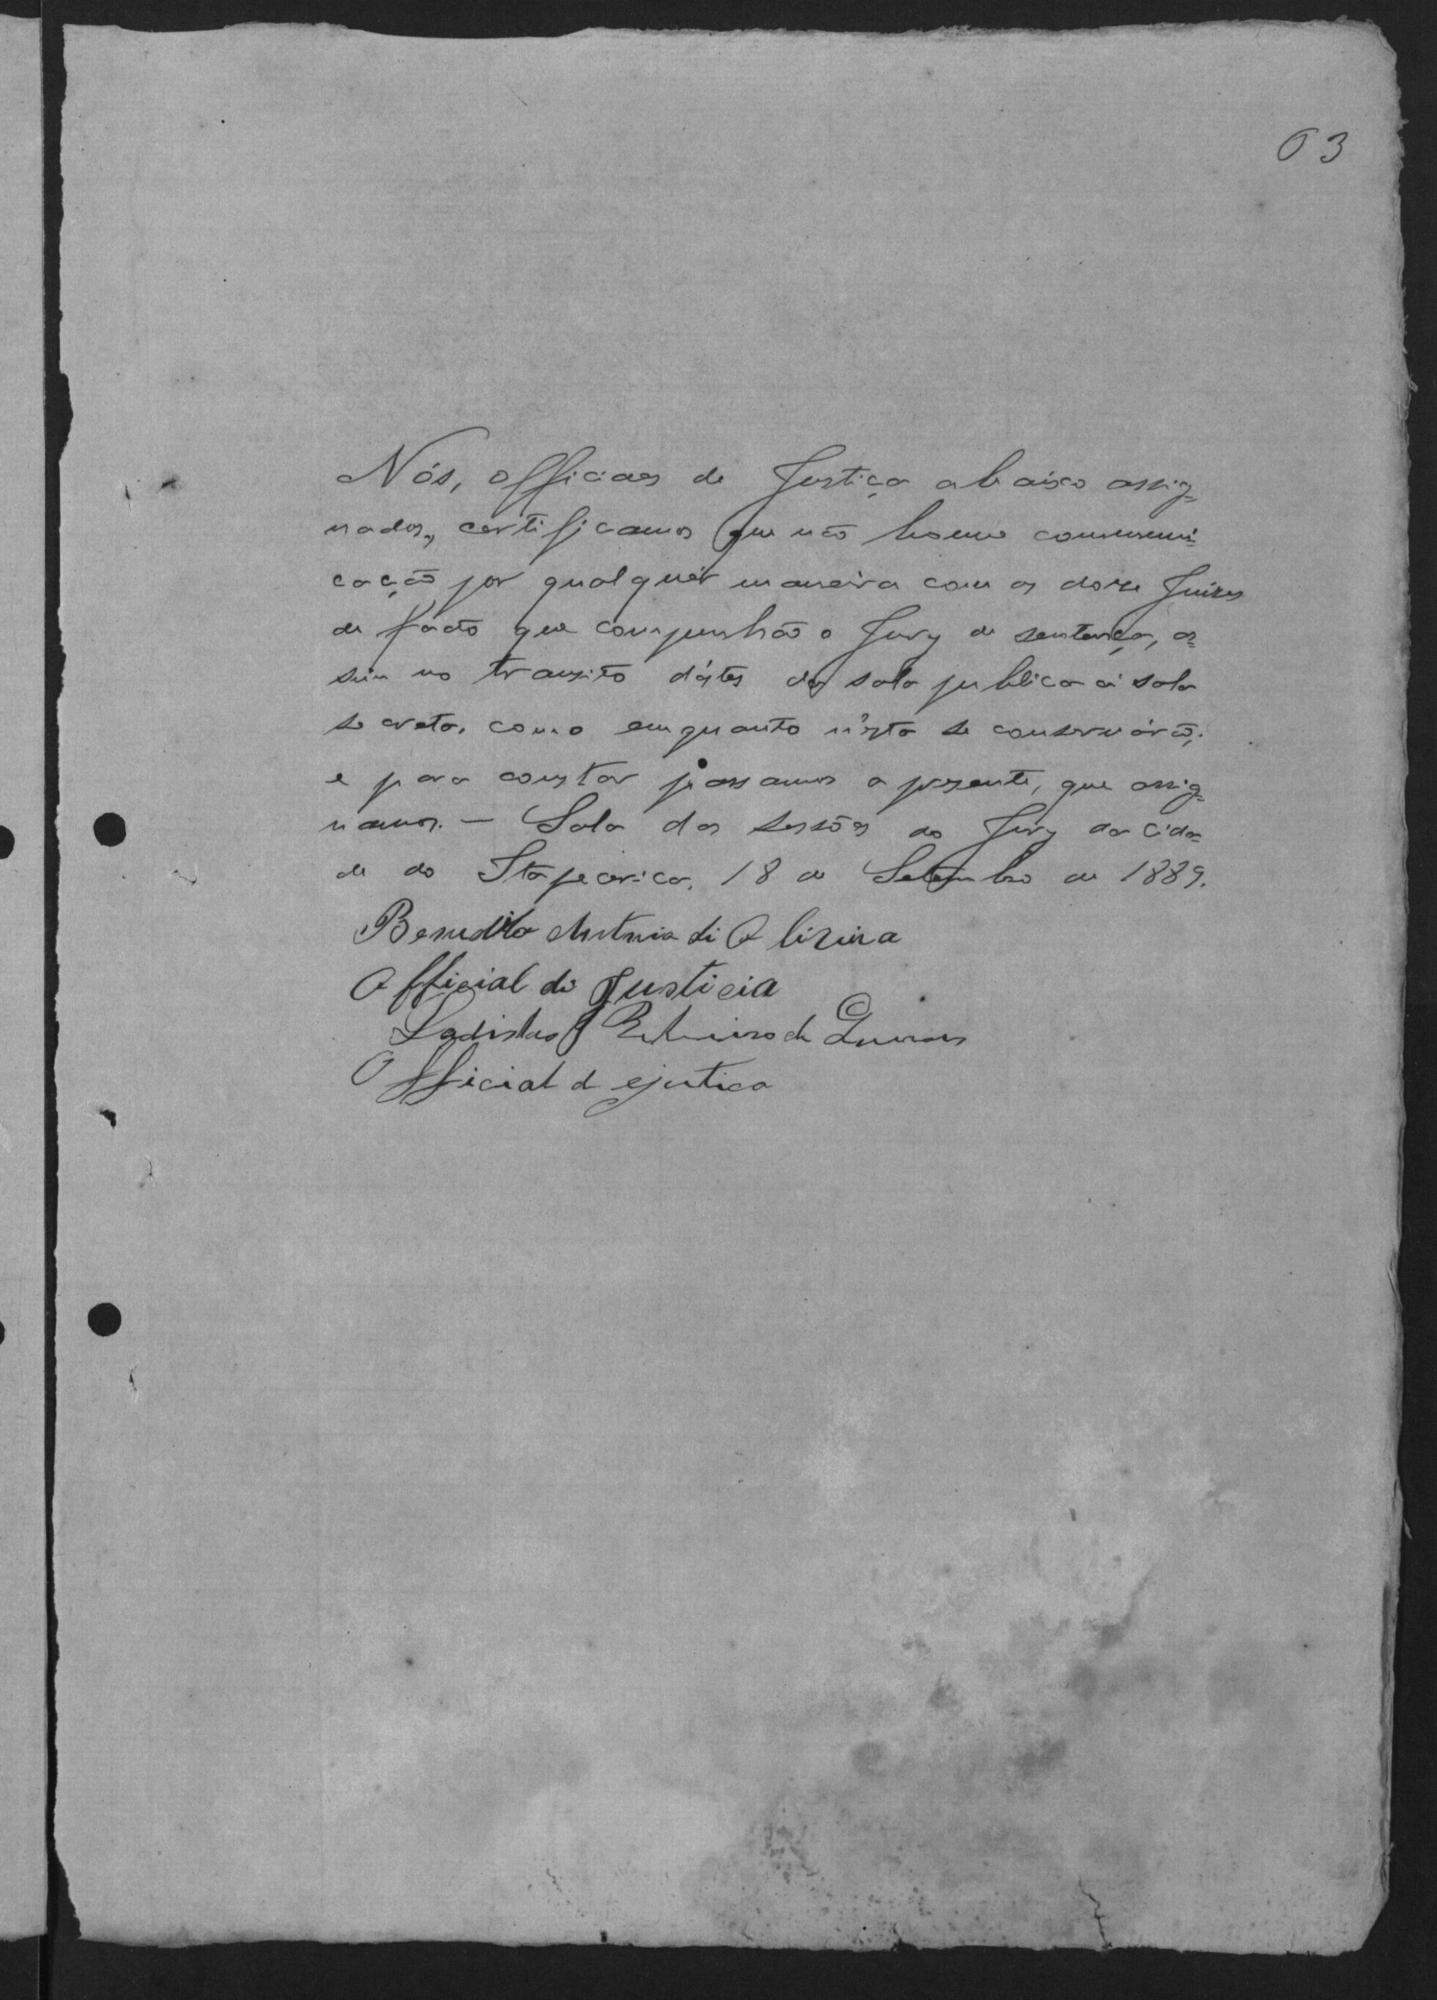 63
Nós, officiaes de Justiça abaixo assig=
nados, certificamos que não houve communi=
cação por qualquer maneira com os doze Juizes
de facto que compunhão o Jury de sentença, as=
sim no transito déstes da sala publica á sala
secreta, como emquanto n'ésta se conservárão;
e para constar passamos a presente, que assig=
namos. — Sala das sessões do Jury da Cida=
de do Itapecerica, 18 de Setembro de 1889.
Benedito Antonio di Olivira
Official do Justicia
Ladislao Ribeiro de
Official d ejustica